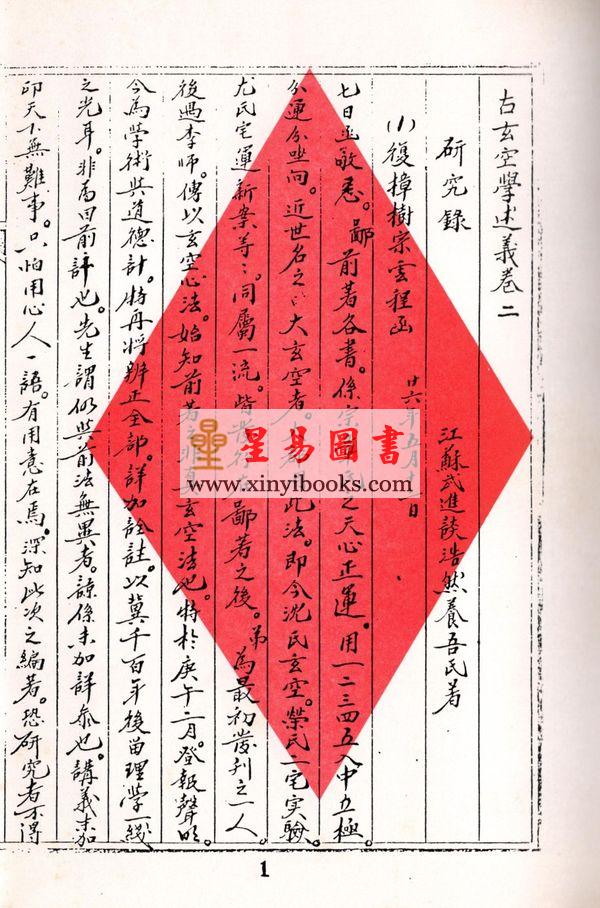 古玄空學述義卷二
研究錄
江蘇武進談浩然養吾氏著
(1)復樟樹宗雲程函
廿六年五月十 日
七日函敬悉。鄙前著各書。係宗 氏之天心正運。用一二三四五入中立極。
分運分坐向。近世名之曰大玄空者。 此法。即今沈氏玄空。榮氏二宅实驗。
尤氏宅運新案等等。同屬一流。皆發行在鄙著之後。弟為最初發刊之一人。
後遇李師。傳以玄空心法。始知前著之非真玄空法也。特於庚午二月。登報聲明。
今為學術與道德計。特再將辨正全部。詳加詮註。以冀千百年後留理學一綫
之光耳。非為田前評也。先生謂仍與前法無異者。諒係未加詳參也。講義未加
印天下無難事。只怕用心人一語。有用意在焉。深知此次之編著。恐研究者不得
星易圖書
www.xinyibooks.com
1